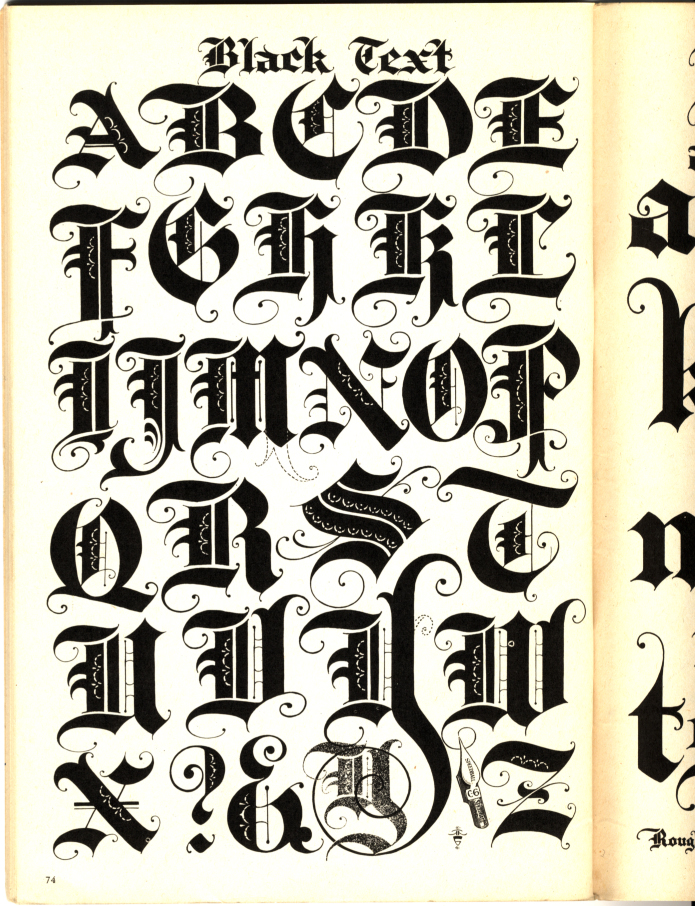 Black Text
A B C D E
F G H K L
I J M N O P
Q R S T
U V Y W
X ? & Y Z
74
a
k
t
Roug